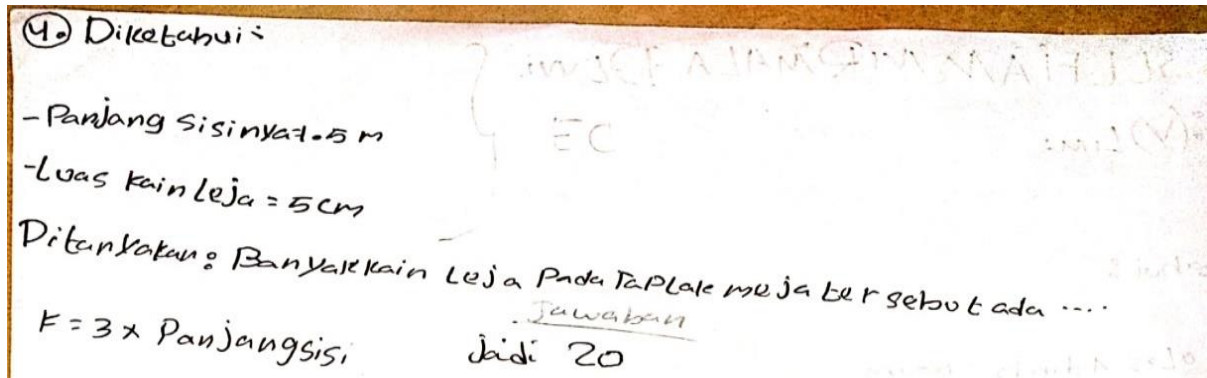 4. Diketahui:
- Panjang sisinya=1.5 m
- Luas kain leja = 5 cm
Ditanyakan: Banyak kain leja Pada Taplak meja tersebut ada ....
Jawaban
K = 3 x Panjang sisi
Jadi 20